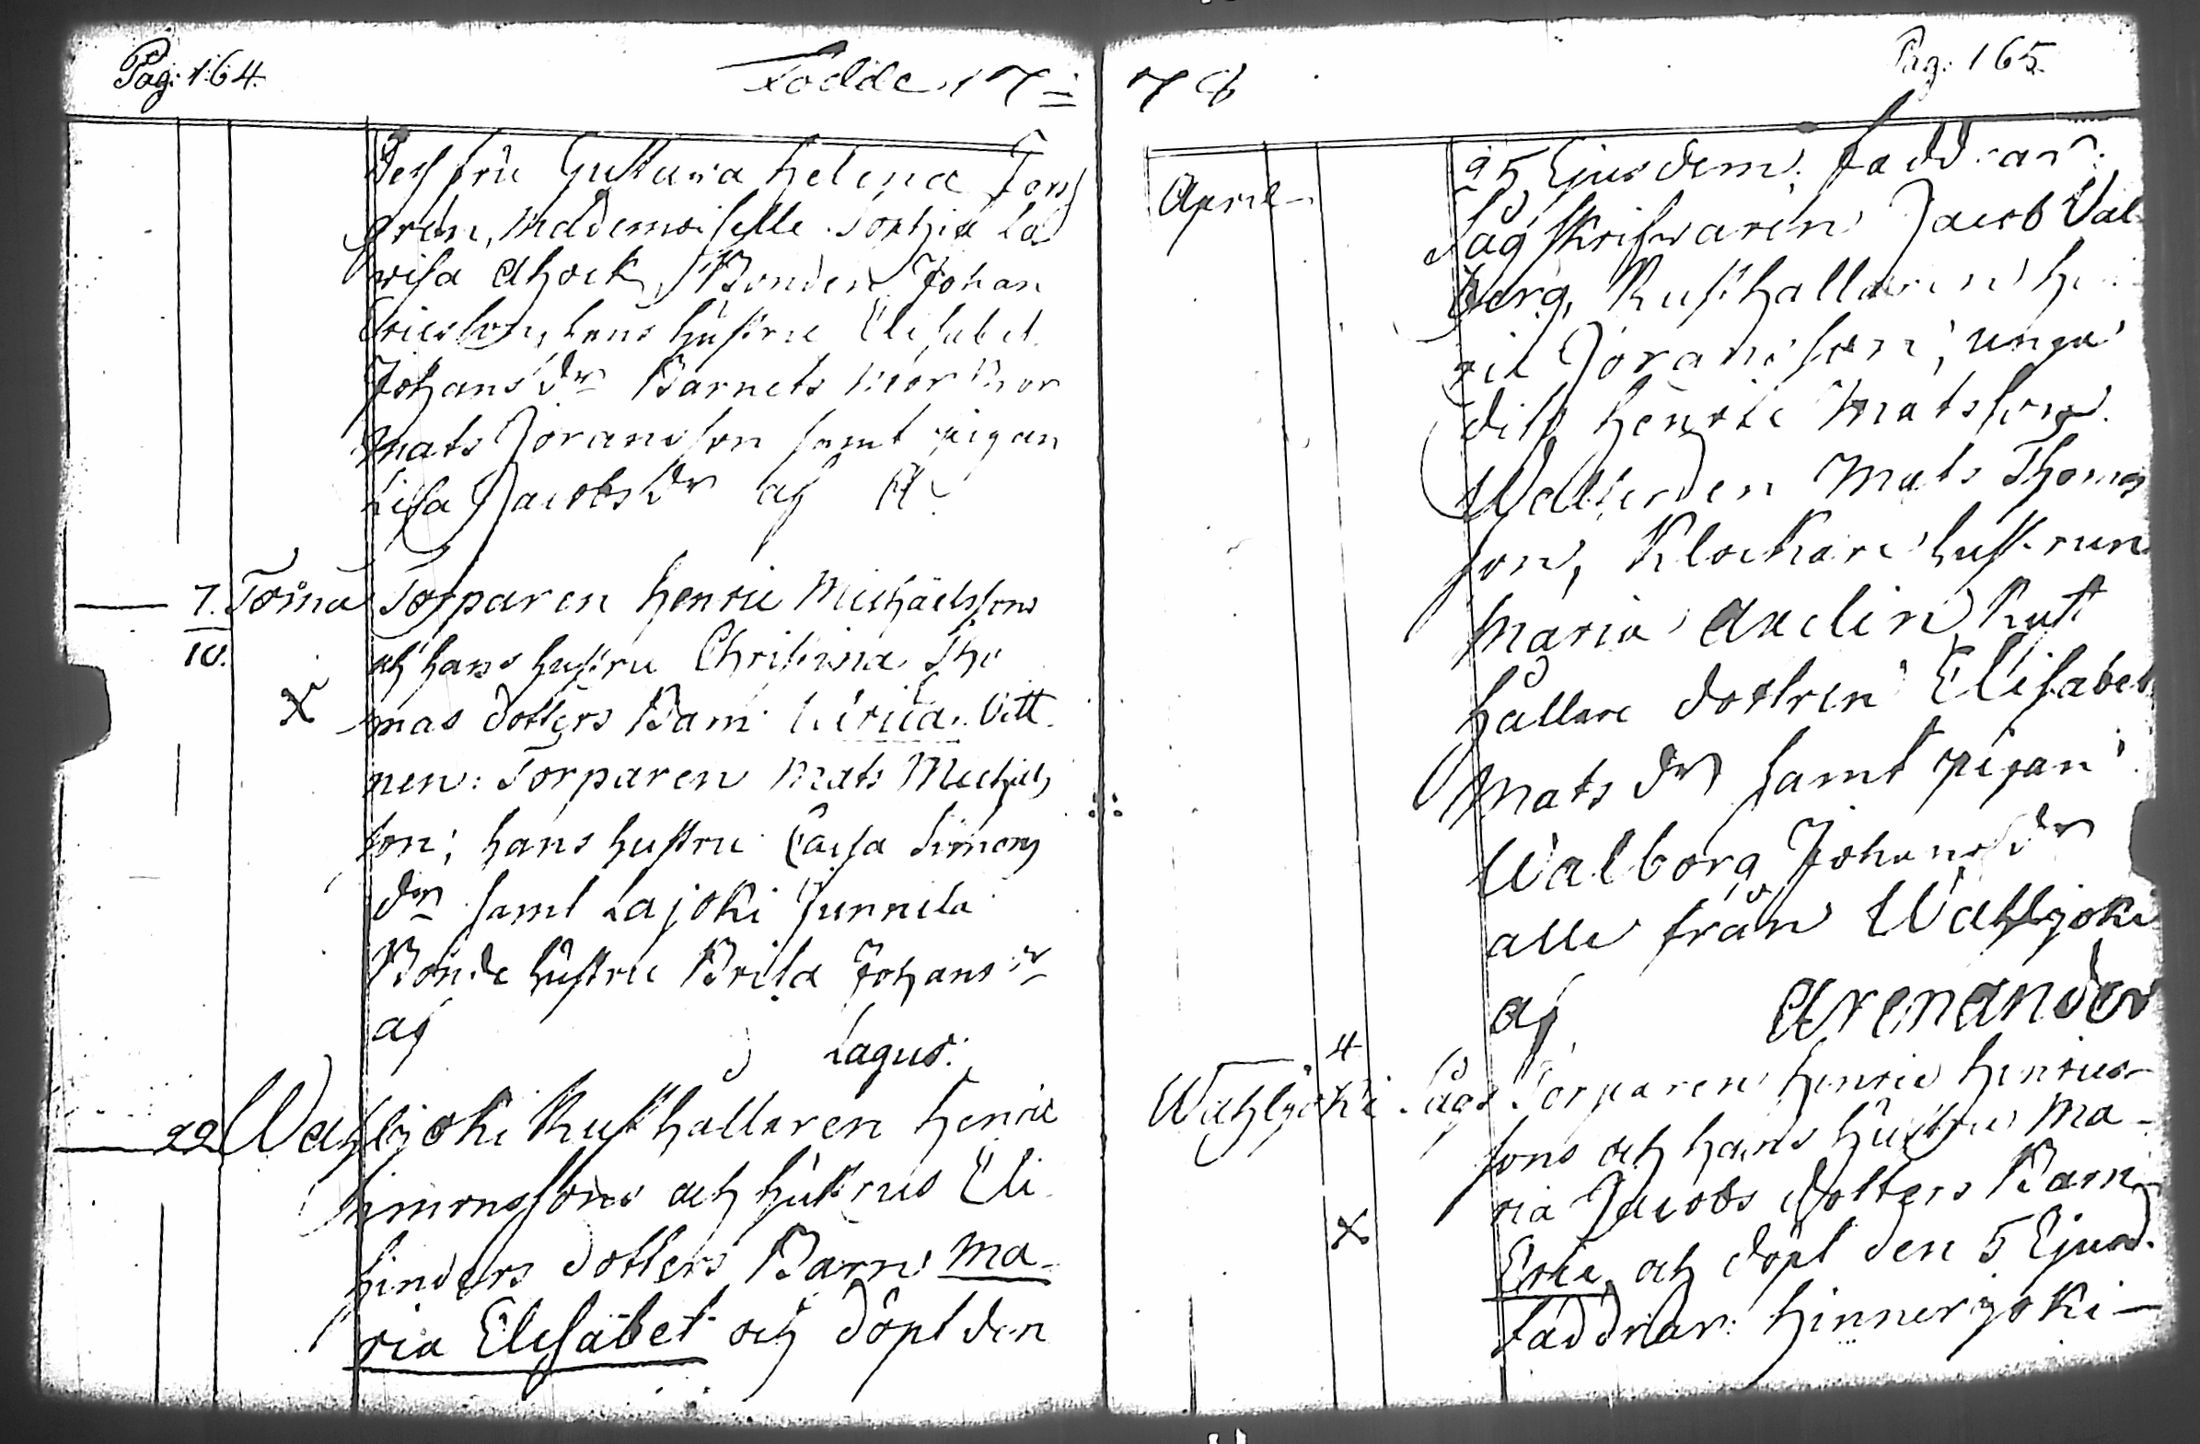 Pag: 164.
Födde 17
Dess fru Gustava Helena Fors
gren, Mademoiselle Sophia Lo
visa Ahock, Bonden Johan
Ericsson, hans hustru Elisabet
Johans dr Barnets Mor Bror
Mats Jöransson samt pigan
Lisa Jacobs dr af A.
7. Torparen Henric Michaelssons
10. och hans hustru Christina Tho
X mas dotters Barn Ulrica. Vitt
nen: Torparen Mats Michels
son; hans hustru Caisa Simons
dr samt Lajoki Junnila
Bonde hustru Brita Johans dr
af Lagus.
22 Wahljoki Rusthallaren Henric
Simonssons och hustrus Eli
Hinders dotters Barn Ma-
ria Elisabet och döpt den
78
Pag: 165.
April
25 Ejusdem. Faddrar:
Såg skrifvaren Jacob Val
berg, Rusthallaren Hen
ric Jöransson, unga
dito Henric Matsson.
Mats Thomas
son, Klockare hustrun
Maria Axelin Rust
hållare dottren Elisabet
Mats dr samt pigan
Walborg Johans dr
alla från Wahljoki
af Arenander
4
Wahljoki Sågs Torparen Henric Henrics
sons och hans hustrus Ma-
ria Jacobs dotters Barn
X Eric och döpt den 5 Ejusd.
Faddrar: Hinnerjoki